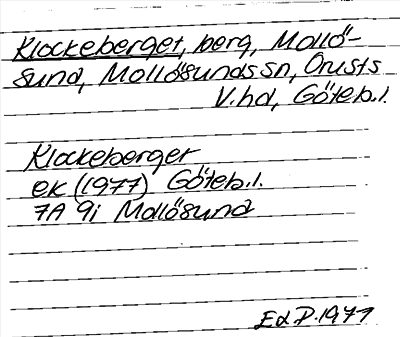 Klockeberget, berg, Mollö-
sund, Mollösunds sn, Orusts
V. hd, Göteb. l.
Klockeberget
ek (1977) Göteb. l.
7A 9i Mollösund
Ed P. 1977